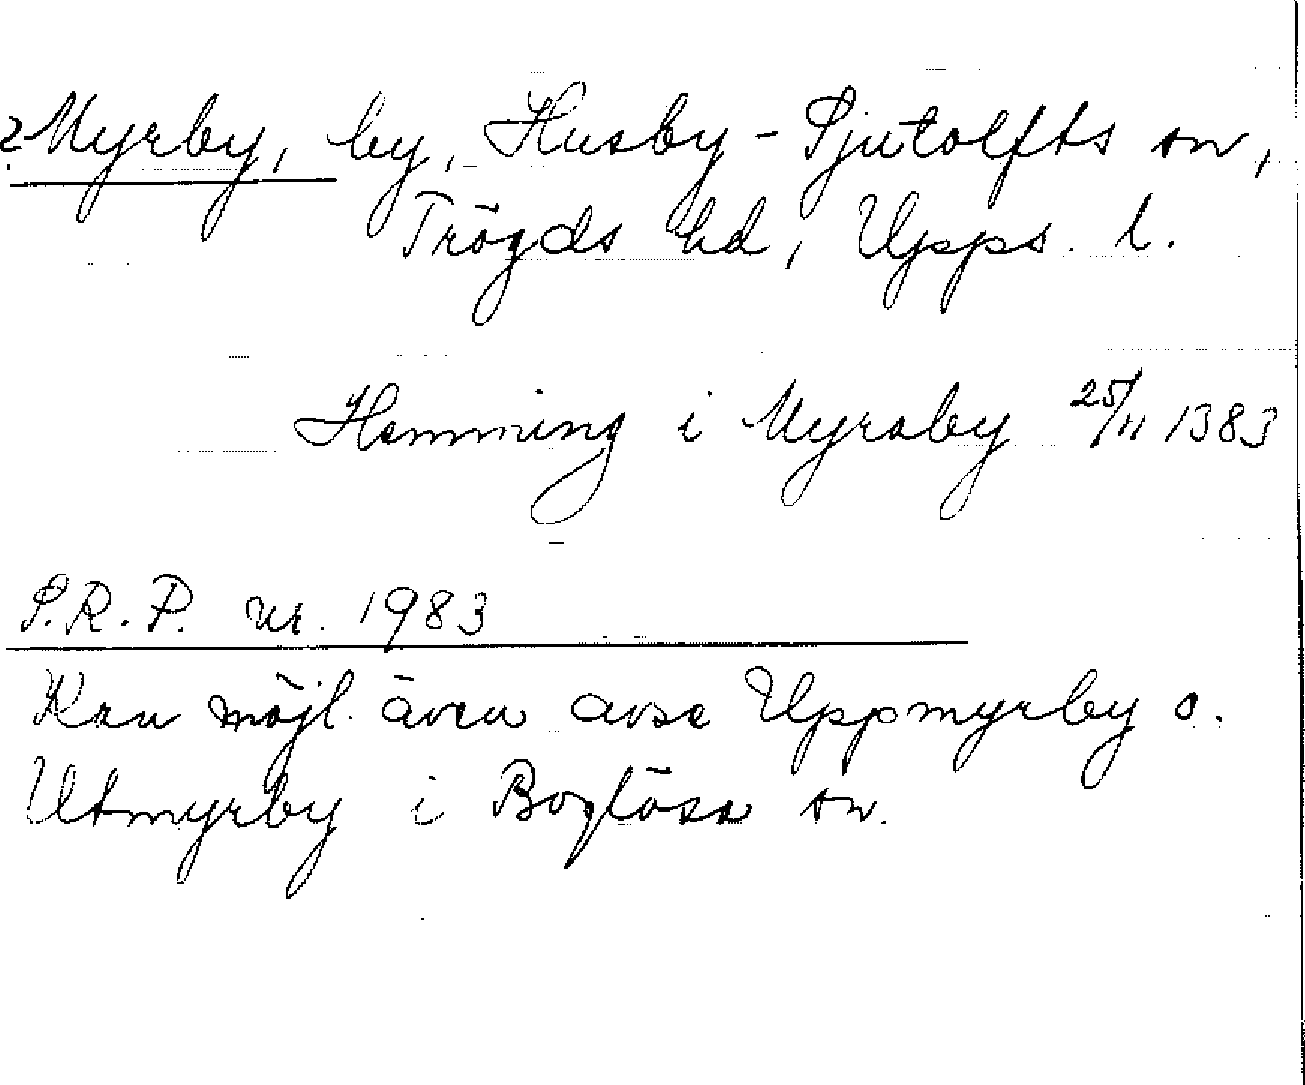 ?Myrby, by, Husby-Sjutolfts sn,
Trögds hd, Upps. l.
Hemming i Myraby 25/11 1383
S.R.P. nr. 1983
Kan möjl. även avse Uppmyrby o.
Utmyrby i Boglösa sn.